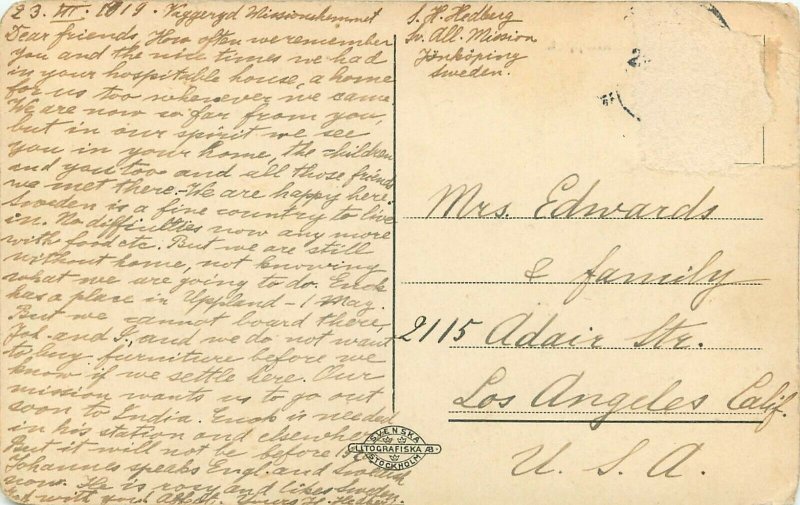 23. VII. 1919. Vaggeryd Missionshemmet
Dear friends, How often we remember
you and the nice times we had
in your hospitable house, a home
for us too whenever we came.
We are now so far from you,
but in our spirit we see
you in your home, the children
and you too and all those friends
we met there. - We are happy here.
Sweden is a fine country to live
in. No difficulties now any more
with food etc. But we are still
without home, not knowing
what we are going to do. Enok
has a place in Uppland - 1 May.
But we cannot board there,
Joh. and I, and we do not want
to buy furniture before we
know if we settle here. Our
mission wants us to go out
soon to India. Enok is needed
in his station and elsewhere.
But it will not be before
Johannes speaks Engl. and Swedish
now. He is rosy and likes Sweden.
God with you. Yours H. Hedberg
S. H. Hedberg
Sv. All. Mission
Jönköping
Sweden.
Mrs. Edwards
& family
2115 Adair Str.
Los Angeles Calif.
U. S. A.
SVENSKA
LITOGRAFISKA AB
STOCKHOLM